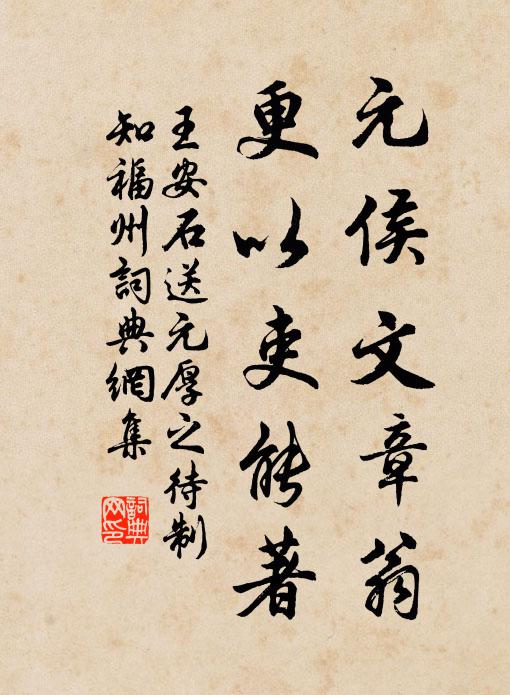 元侯文章翁
更以吏能著
王安石送元厚之待制
知福州詞典網集
詞典網印